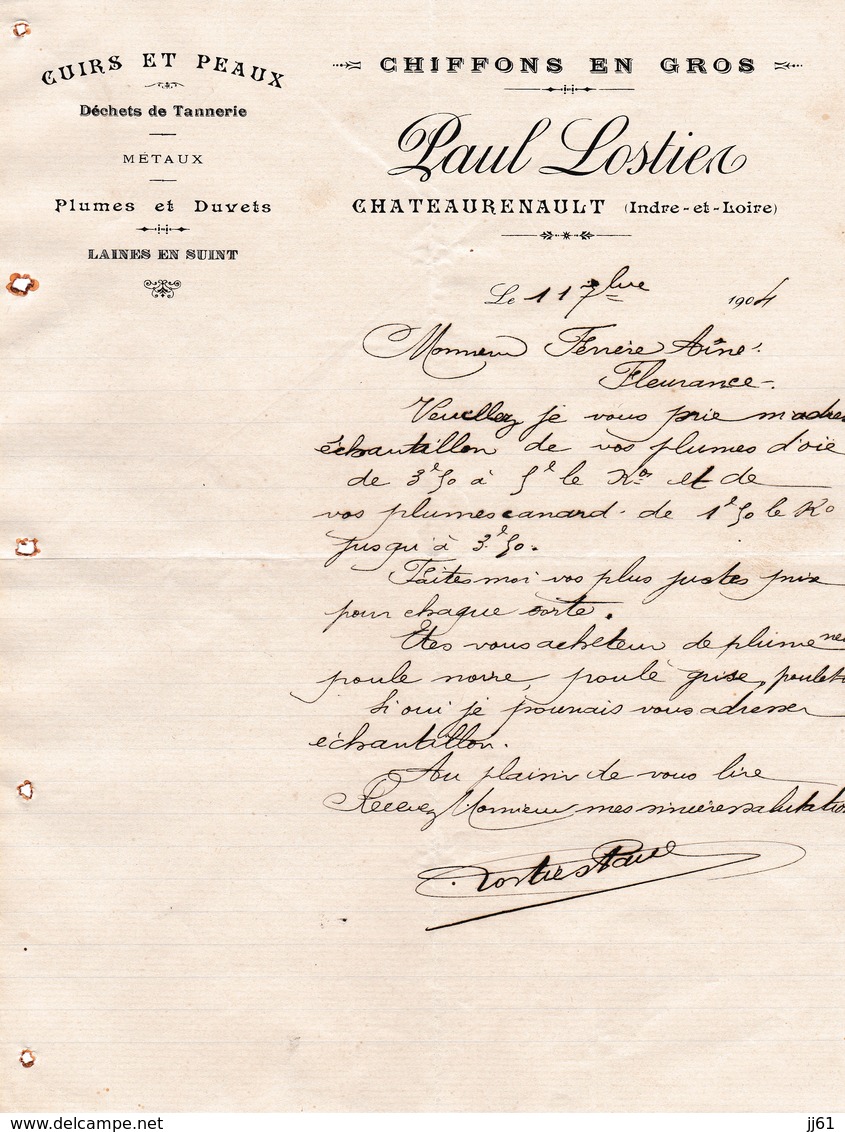 CUIRS ET PEAUX
Déchets de Tannerie
MÉTAUX
Plumes et Duvets
LAINES EN SUINT
CHIFFONS EN GROS
Paul Lostier
CHATEAURENAULT (Indre-et-Loire)
Le 11 7bre 1904
Monsieur Ferrère Aîné.
Fleurance.
Veuillez je vous prie m'adres
échantillon de vos plumes d'oie
de 3f50 à 5f le Ko et de
vos plumes canard de 1f50 le Ko
jusqu'à 3f50.
Faites moi vos plus justes prix
pour chaque sorte.
Etes vous acheteur de plume
poule noire, poule grise, poulet
Si oui je pourrais vous adresser
échantillon.
Au plaisir de vous lire
Recevez Monsieur mes sincères salutation
Lostier Paul
www.delcampe.net
jj61